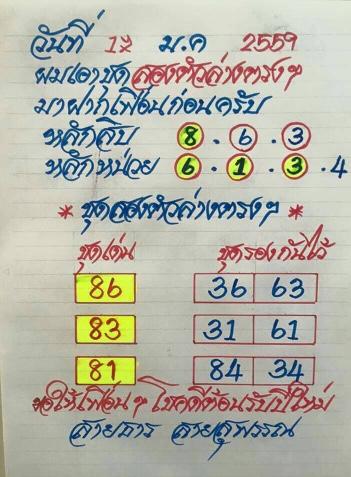 วันที่ 17 ม.ค 2559
ผมเอาชุดสองตัวล่างตรงๆ
มาฝากเพื่อนก่อนครับ
หลักสิบ 8 . 6 . 3
หลักหน่วย 6 . 1 . 3 . 4
* ชุดสองตัวล่างตรงๆ *
ชุดเด่น ชุดรองกันไว้
86 36 63
83 31 61
81 84 34
ขอให้เพื่อนๆ โชคดีต้อนรับปีใหม่
สายธาร สายสุพรรณ